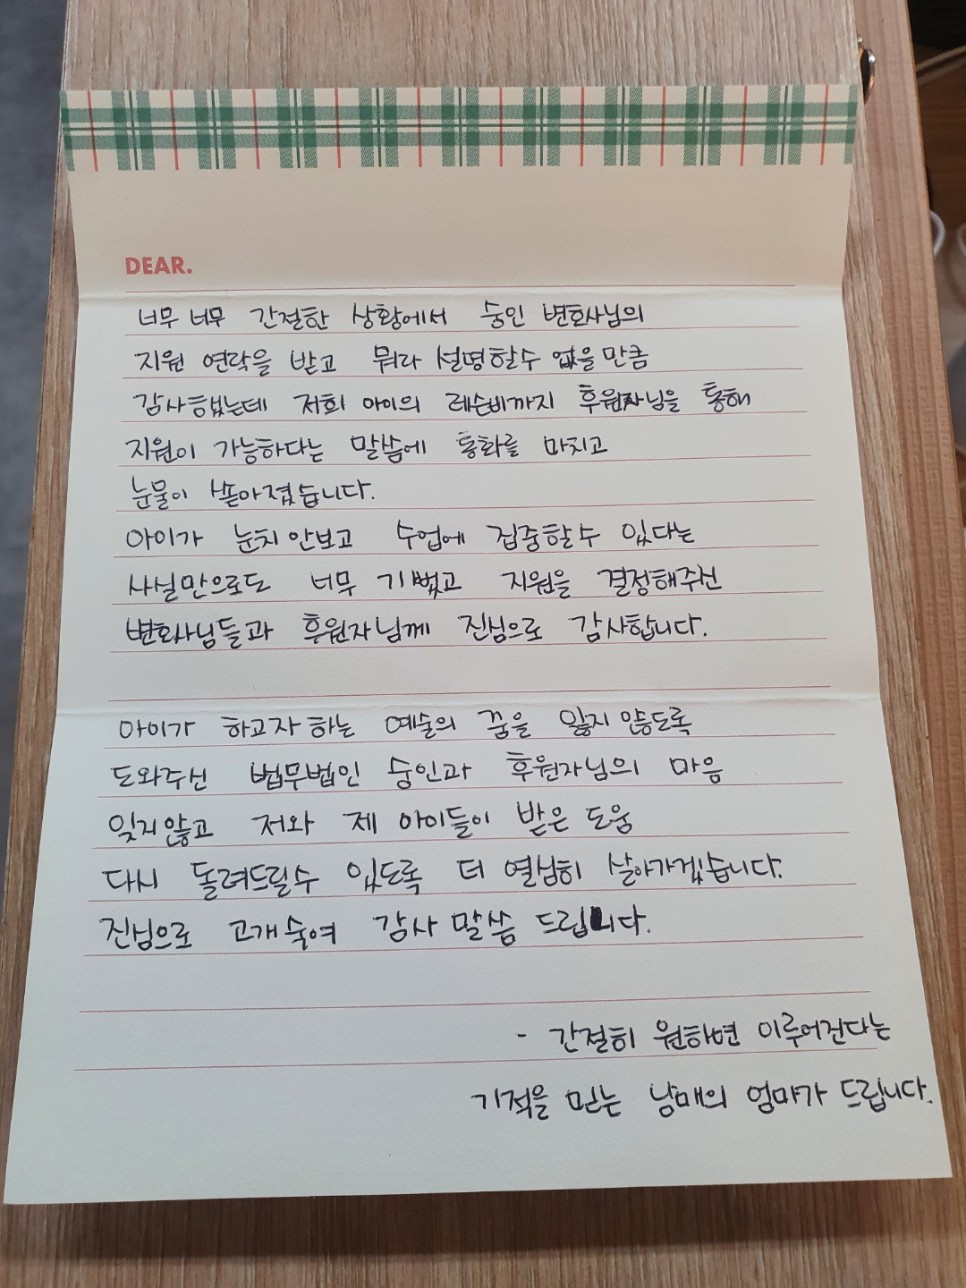 DEAR.
너무 너무 간절한 상황에서 숭인 변호사님의
지원 연락을 받고 뭐라 설명할수 없을 만큼
감사했는데 저희 아이의 레슨비까지 후원자님을 통해
지원이 가능하다는 말씀에 통화를 마치고
눈물이 쏟아졌습니다.
아이가 눈치 안보고 수업에 집중할수 있다는
사실만으로도 너무 기뻤고 지원을 결정해주신
변호사님들과 후원자님께 진심으로 감사합니다.
아이가 하고자 하는 예술의 꿈을 잃지 않도록
도와주신 법무법인 숭인과 후원자님의 마음
잊지않고 저와 제 아이들이 받은 도움
다시 돌려드릴수 있도록 더 열심히 살아가겠습니다.
진심으로 고개숙여 감사 말씀 드립니다.
- 간절히 원하면 이루어진다는
기적을 믿는 남매의 엄마가 드립니다.